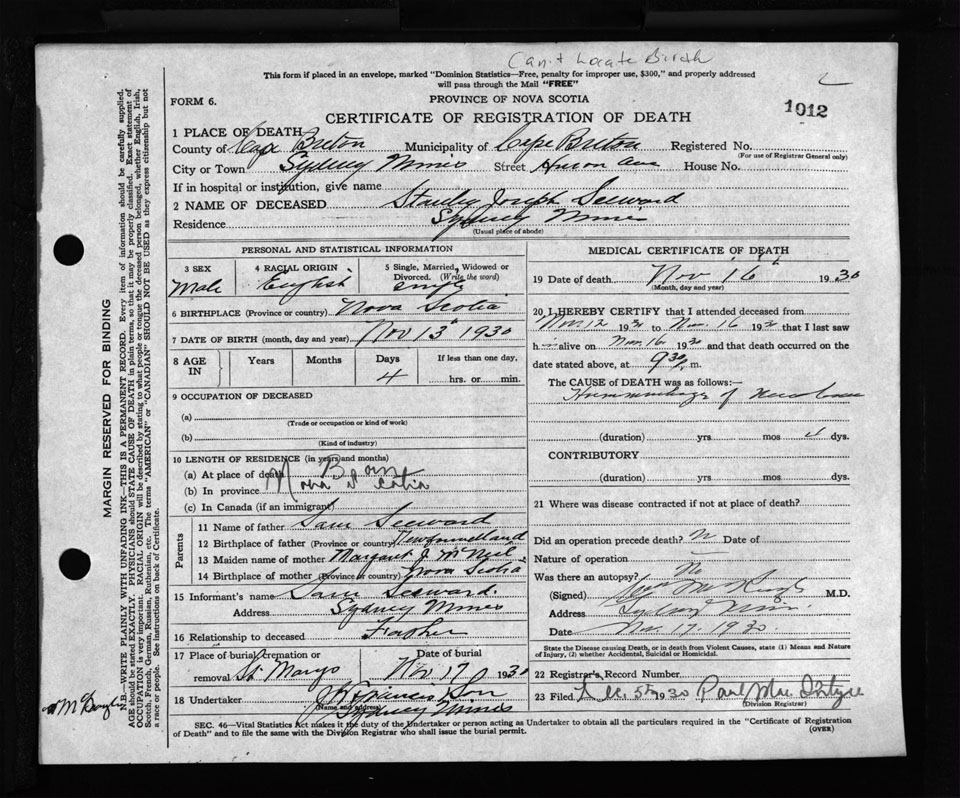 Can't Locate Birth
This form if placed in an envelope, marked "Dominion Statistics—Free, penalty for improper use, $300," and properly addressed
will pass through the Mail "FREE"
FORM 6.
PROVINCE OF NOVA SCOTIA
1012
CERTIFICATE OF REGISTRATION OF DEATH
1 PLACE OF DEATH
County of Cape Breton Municipality of Cape Breton Registered No.
(For use of Registrar General only)
City or Town Sydney Mines Street Huron Ave House No.
If in hospital or institution, give name
2 NAME OF DECEASED Stanley Joseph Seeward
Residence Sydney Mines
(Usual place of abode)
PERSONAL AND STATISTICAL INFORMATION
3 SEX Male
4 RACIAL ORIGIN English
5 Single, Married, Widowed or Divorced. (Write the word) Single
6 BIRTHPLACE (Province or country) Nova Scotia
7 DATE OF BIRTH (month, day and year) Nov 13 1930
8 AGE IN Years Months Days 4 If less than one day, hrs. or min.
9 OCCUPATION OF DECEASED
(a)
(Trade or occupation or kind of work)
(b)
(Kind of industry)
10 LENGTH OF RESIDENCE (in years and months)
(a) At place of death Born
(b) In province Nova Scotia
(c) In Canada (if an immigrant)
Parents
11 Name of father Sam Seeward
12 Birthplace of father (Province or country) Newfoundland
13 Maiden name of mother Margaret J. McNeil
14 Birthplace of mother (Province or country) Nova Scotia
15 Informant's name Sam Seeward
Address Sydney Mines
16 Relationship to deceased Father
17 Place of burial, cremation or removal St Marys
Date of burial Nov 17 1930
18 Undertaker Son
(Name and address) Sydney Mines
MEDICAL CERTIFICATE OF DEATH
19 Date of death Nov 16 1930
(Month, day and year)
20 I HEREBY CERTIFY that I attended deceased from
Nov. 12 1930 to Nov. 16 1930 that I last saw
him alive on Nov. 16 1930 and that death occurred on the
date stated above, at 9.30 m.
The CAUSE of DEATH was as follows:—
Hemmorhage of New born
(duration) yrs mos dys.
CONTRIBUTORY
(duration) yrs mos dys.
21 Where was disease contracted if not at place of death?
Did an operation precede death? N Date of
Nature of operation
Was there an autopsy? No
(Signed) M.D.
Address Sydney Mines
Date Nov. 17. 1930.
State the Disease causing Death, or in death from Violent Causes, state (1) Means and Nature
of Injury, (2) whether Accidental, Suicidal or Homicidal.
22 Registrar's Record Number
23 Filed Dec 5 1930 Paul Mac Intyre
(Division Registrar)
SEC. 46—Vital Statistics Act makes it the duty of the Undertaker or person acting as Undertaker to obtain all the particulars required in the "Certificate of Registration
of Death" and to file the same with the Division Registrar who shall issue the burial permit.
(OVER)
MARGIN RESERVED FOR BINDING
N.B.—WRITE PLAINLY WITH UNFADING INK—THIS IS A PERMANENT RECORD. Every item of information should be carefully supplied.
AGE should be stated EXACTLY. PHYSICIANS should STATE CAUSE OF DEATH in plain terms, so that it may be properly classified. Exact statement of
OCCUPATION is very important. RACIAL ORIGIN will be described by stating to what people or tongue the deceased person belonged, whether English, Irish,
Scotch, French, German, Russian, Ruthenian, etc. The terms "AMERICAN" or "CANADIAN" SHOULD NOT BE USED as they express citizenship but not
a race or people. See instructions on back of Certificate.